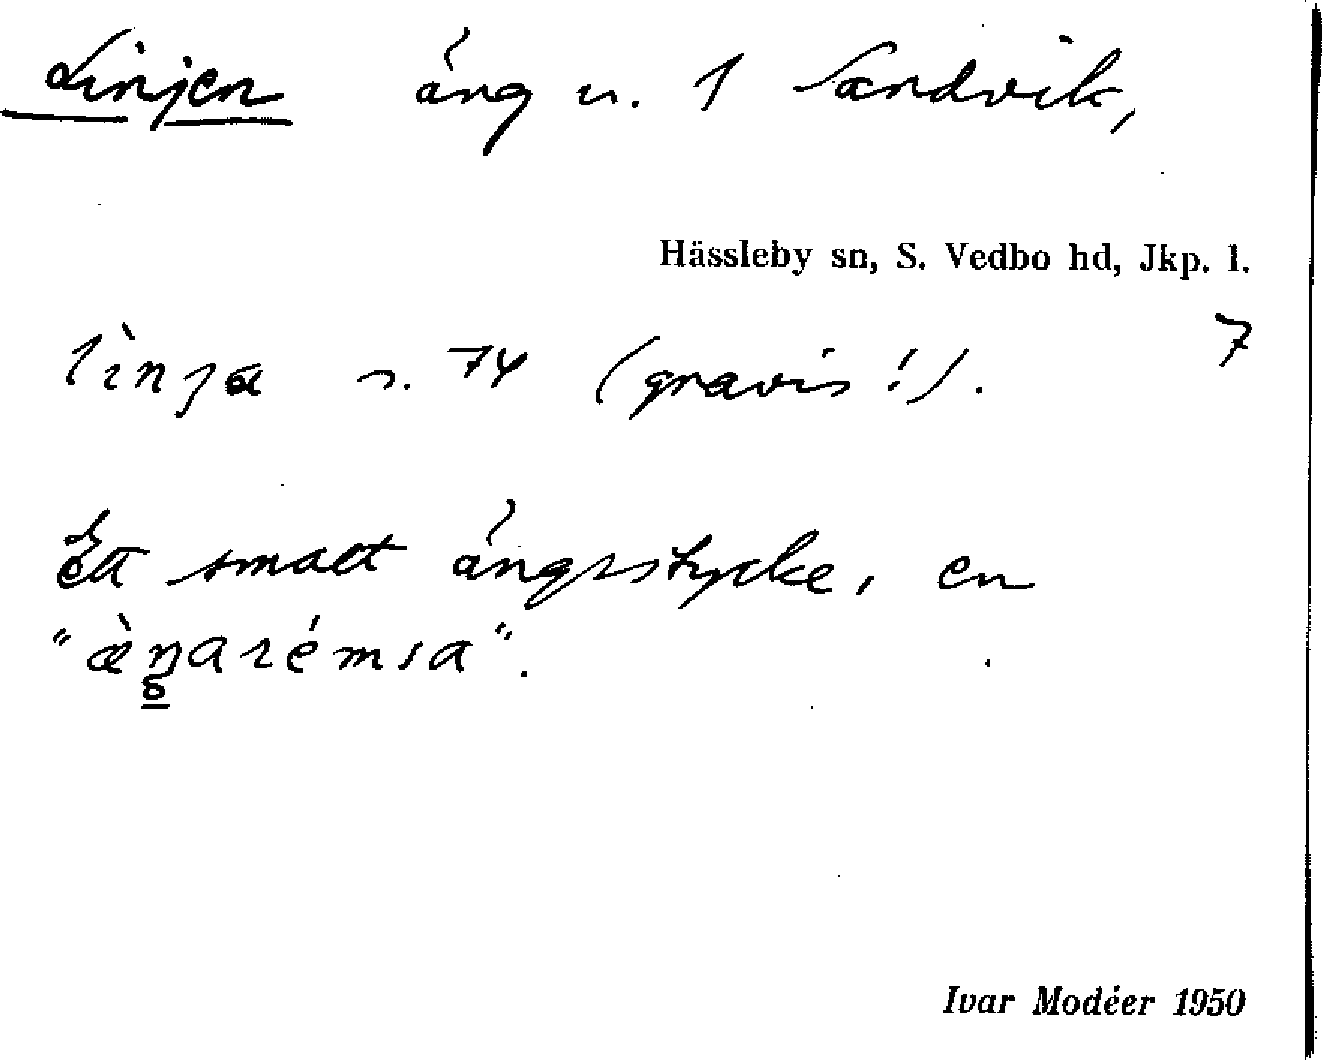 Linjen äng u. 1 Sandvik,
Hässleby sn, S. Vedbo hd, Jkp. l.
7
lìnja s. 74 (gravis!).
Ett smalt ängsstycke, en
"æ̀ŋarémsa".
g
Ivar Modéer 1950